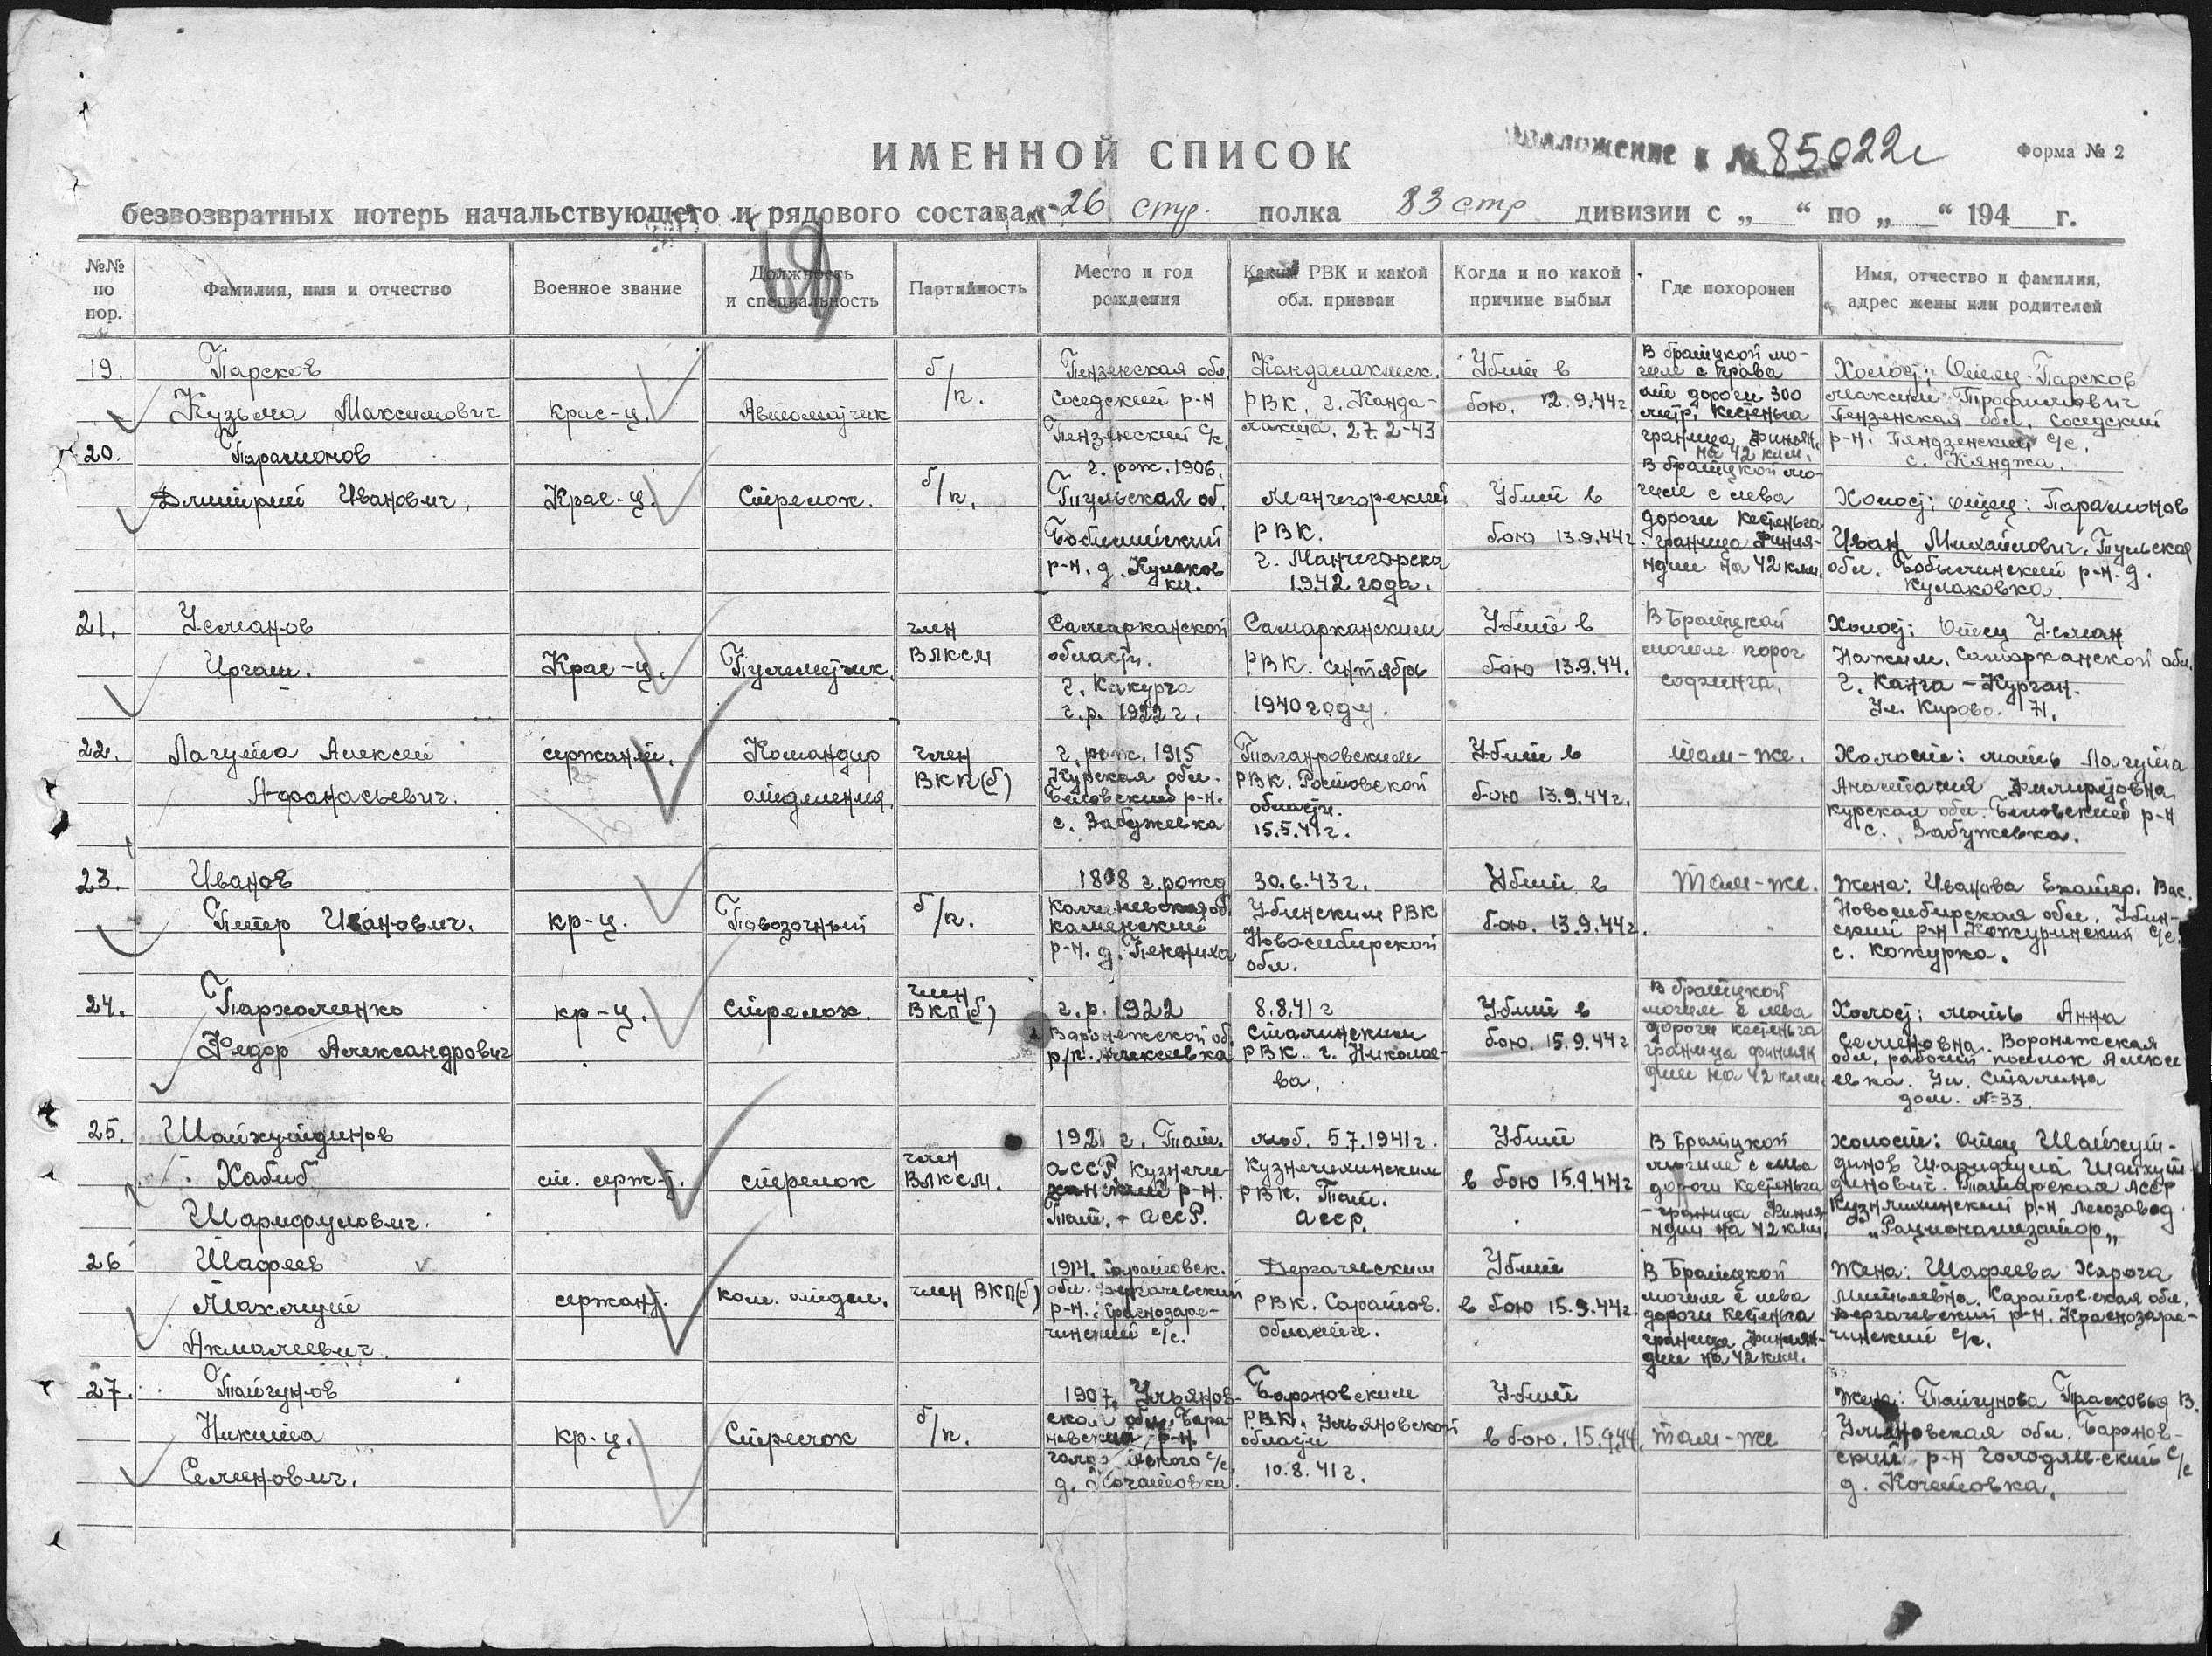 ИМЕННОЙ СПИСОК
Приложение к № 85022с
Форма № 2
безвозвратных потерь начальствующего и рядового состава 26 стр. полка 83 стр дивизии с „ “ по „ “ 194 г.
№№ по пор.
Фамилия, имя и отчество
Военное звание
Должность и специальность
Партийность
Место и год рождения
Каким РВК и какой обл. призван
Когда и по какой причине выбыл
Где похоронен
Имя, отчество и фамилия, адрес жены или родителей
19.
Парсков
Кузьма Максимович
Крас-ц.
Автоматчик
б/п.
Пензенская обл.
Соседский р-н
Пензянский с/с.
г. рож. 1906.
Кандалакшск.
РВК. г. Канда-
лакша. 27.2-43
Убит в
бою. 12.9.44г.
В братской мо-
гиле с права
от дороги 300
метр. Кестеньга
граница Финлян.
на 42 клм.
Холост: Отец Парсков
Максим Трофимович
Пензенская обл. Соседский
р-н. Пяндзенский с/с.
с. Кянджа.
20.
Парамонов
Дмитрий Иванович.
Крас-ц.
Стрелок.
б/п.
Тульская об.
р-н. д. Кулаков
ки.
Мончегорский
РВК.
г. Мончегорска
1942 года.
Убит в
бою 13.9.44г
В братской мо-
гиле с лева
дороги Кестеньга
граница Финля-
ндии на 42 клм.
Холост: отец: Парамонов
Иван Михайлович. Тульская
обл. р-н. д.
Кулаковка.
21.
Усманов
Иргаш.
Крас-ц.
Пулеметчик.
член
ВЛКСМ
Самарканской
области.
г. Какурга
г.р. 1922 г.
Самарканским
РВК. сентябрь
1940 году.
Убит в
бою 13.9.44.
В Братской
могиле порог
софьянга.
Холост: Отец Усман
Нажим. Самарканской обл.
г. Канга-Курган.
Ул. Кирова. 71.
22.
Лагута Алексей
Афанасьевич.
сержант.
Командир
отделения.
член
ВКП(б)
г. рож. 1915
Курская обл.
Беловский р-н.
с. Забужевка
Таганровским
РВК. Ростовской
области.
15.5.41г.
Убит в
бою 13.9.44г.
там-же.
Холост: мать Лагута
Анастасия Филиповна
Курская обл. Беловский р-н
с. Забужевка.
23.
Иванов
Петр Иванович.
кр-ц.
Повозочный
б/п.
1898 г. рожд
Каменский
р-н. д.
30.6.43г.
Убинским РВК
Новосибирской
обл.
Убит в
бою. 13.9.44г.
Там-же.
Жена: Иванова Екатер. Вас.
Новосибирская обл. Убин-
ский р-н Кожуринский с/с.
с. Кожурка.
24.
Пархоменко
Федор Александрович
кр-ц.
стрелок.
член
ВКП(б)
г.р. 1922
Воронежской об.
р/п. Алексеевка
8.8.41г
Сталинским
РВК. г. Николае-
ва.
Убит в
бою. 15.9.44г
В братской
могиле с лева
дороги Кестеньга
граница Финлян
дии на 42 клм.
Холост: мать Анна
Семеновна. Воронежская
обл. рабочий поселок Алексе
евка. Ул. Сталина
дом. №33.
25.
Шайхутдинов
Хабиб
Шарифулович.
ст. серж-т.
стрелок
член
ВЛКСМ.
1921 г. Тат.
АССР Кузнечи-
хинский р-н.
Тат. - АССР.
моб. 5 7.1941г.
Кузнечихинским
РВК. Тат.
АССР.
Убит
в бою 15.9.44г
В Братской
могиле с лева
дороги Кестеньга
- граница Финля
ндии на 42 клм.
холост: Отец Шайхут-
динов Шарифула Шайхут
динович. Татарская АССР
Кузнечихинский р-н Лесозавод
„Рационализатор„
26
Шафеев
Махмут
Акмалеевич.
сержант.
ком. отдел.
член ВКП(б)
1914. Саратовск.
обл. Дергачевский
р-н. Краснозаре-
чинский с/с.
Дергачевским
РВК. Саратов.
области.
Убит
в бою 15.9.44г.
В Братской
могиле с лева
дороги Кестеньга
граница Финлян-
дии на 42 клм.
Жена: Шафеева
Саратовская обл.
Дергачевский р-н. Краснозаре-
чинский с/с.
27.
Тайгунов
Никита
Семенович.
кр-ц.
Стрелок
б/п.
1907. Ульянов-
ской обл. Бара-
новский р-н.
с/с.
д. Кочатовка.
Барановским
РВК. Ульяновской
области
10.8.41г.
Убит
в бою. 15.9.44.
там-же
Жена: Тайгунова Прасковья В.
Ульяновская обл. Баранов-
ский р-н Голодяевский с/с
д. Кочетовка.